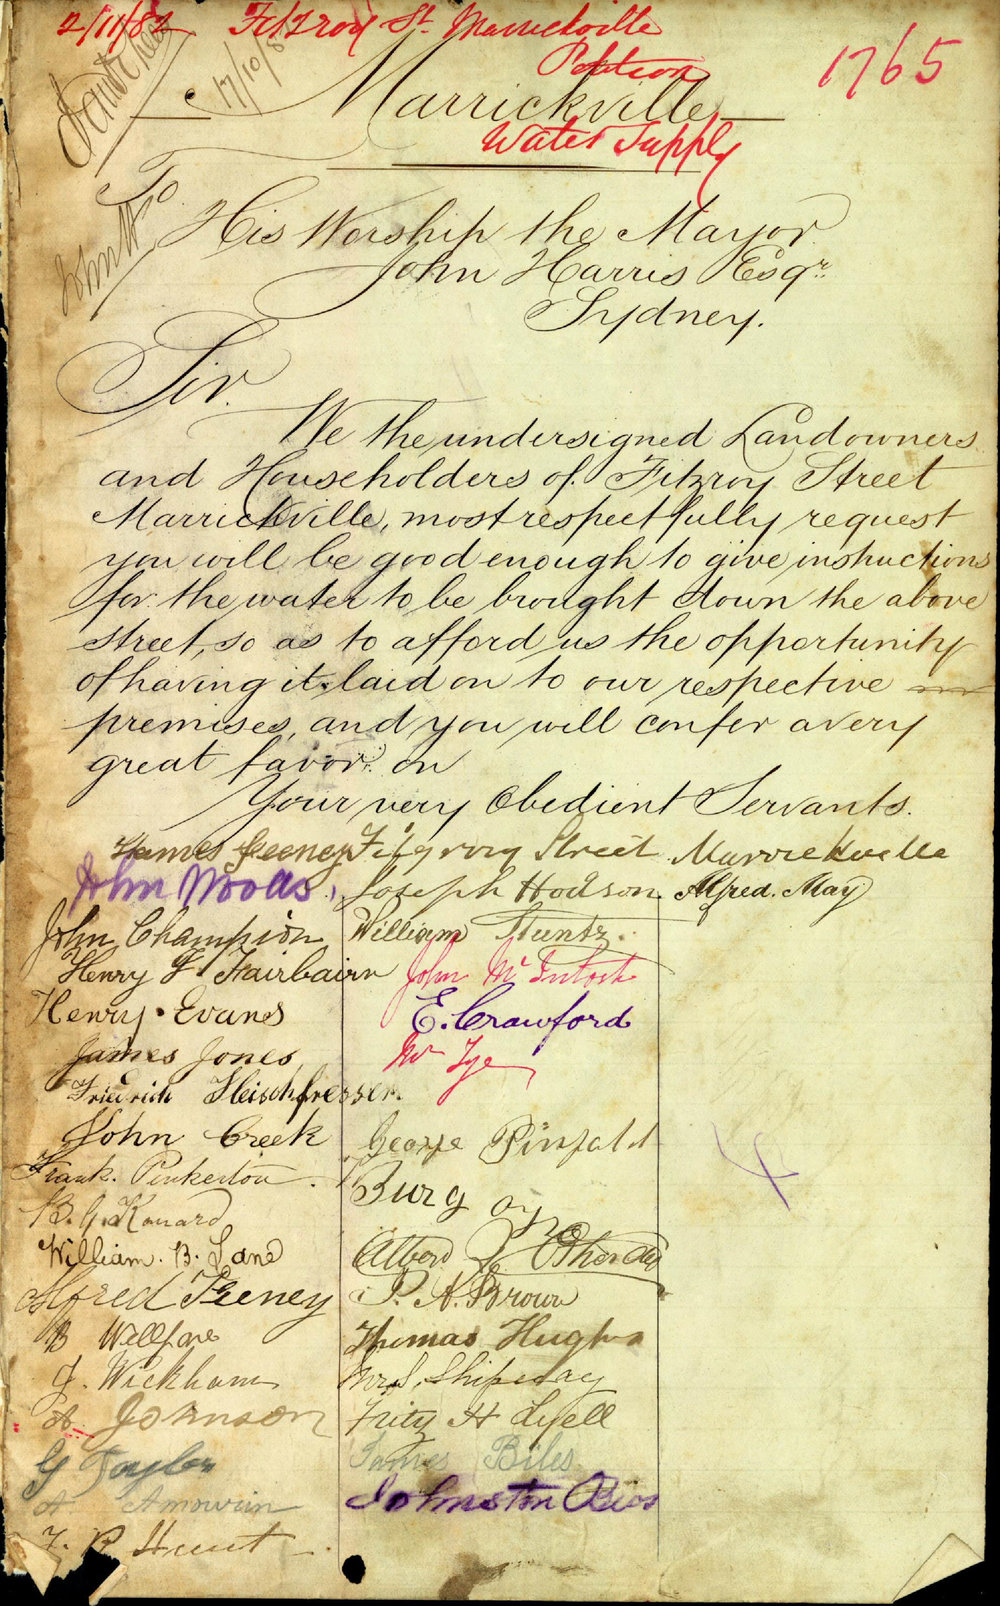 2/11/82 Fitzroy St. Marrickville
Petition
1765
17/10/8
Marrickville
Water Supply
To
His Worship the Mayor
John Harris Esqr.
Sydney.
Sir.
We the undersigned Landowners
and Householders of Fitzroy Street
Marrickville, most respectfully request
you will be good enough to give instructions
for the water to be brought down the above
street, so as to afford us the opportunity
of having it laid on to our respective
premises, and you will confer a very
great favor on
Your very Obedient Servants.
James Feeney Fitzgrory Street Marrickville
John Woods. Joseph Hodson Alfred. May
John Champion William Stuntz.
Henry F. Fairbairn John McIntosh
Henry. Evans E. Crawford
James Jones Mr Tye
Friedrich Fleischfresser.
John Creek George Pinfold
Frank. Pinkerton. Burgoyne
B. G. Konard
William. B. Lane Albero
Alfred Feeney P. A. Brown
B Wellfare Thomas Hughes
J. Wickham Mrs
A Johnson Fritz H Lyell
G Taylor James Biles
A Johnston Bros
J. R Hunt